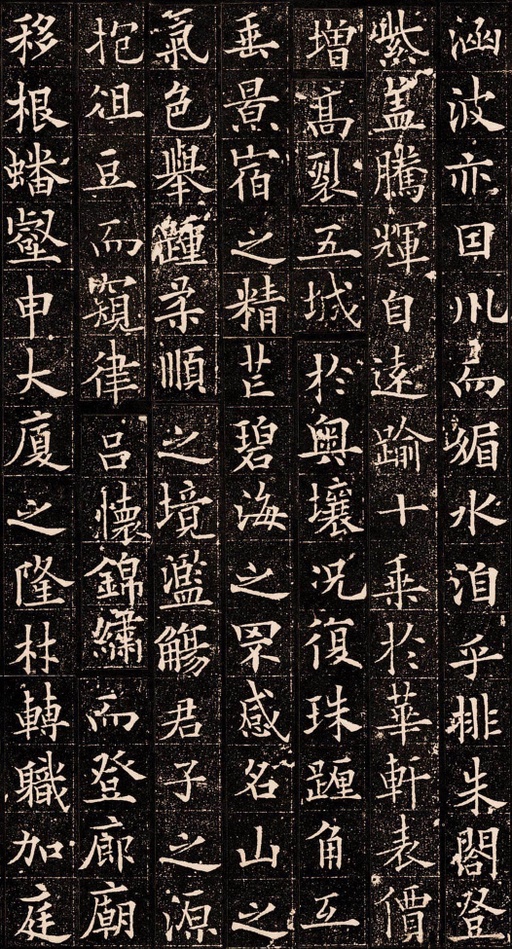 涵波亦因川而媚水洎乎排朱閣登
紫蓋騰輝自遠踰十乘於華軒表價
增高裂五城於奧壤況復珠躔角亢
垂景宿之精芒碧海之罘感名山之
氣色舉踵柔順之境濫觴君子之源
抱俎豆而窺律呂懷錦繡而登廊廟
移根蟠壑申大廈之隆材轉職加庭